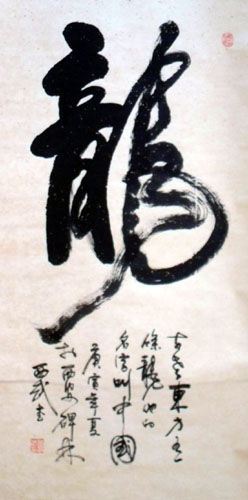 龍
古老東方有一
條龍她的
名字叫中國
庚寅年夏
於西安碑林